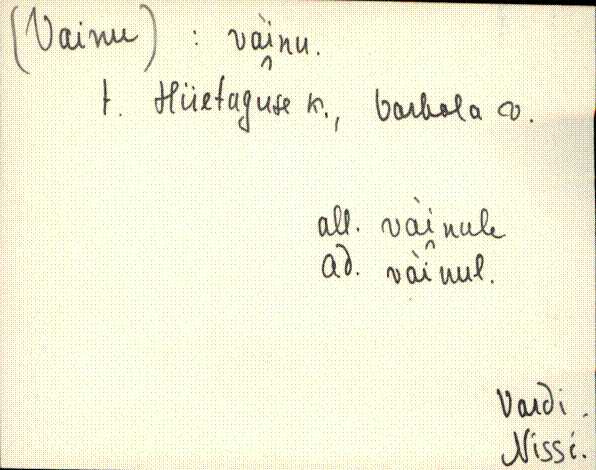 (Vainu) : vài̭nu.
t. Hüetaguse k., Varbola v.
all. vài̭nule
ad. vài̭nul.
Vardi.
Nissi.